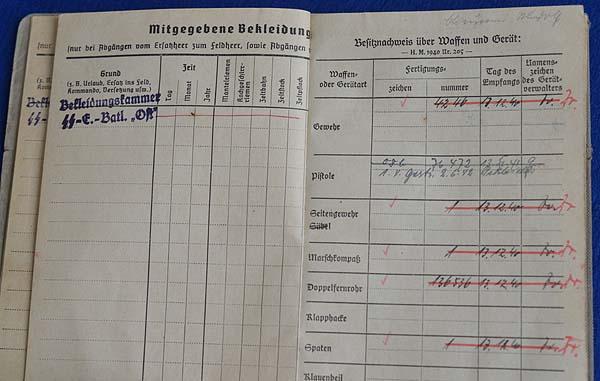 Mitgegebene Bekleidung
(nur bei Abgängen vom Ersatzheer zum Feldheer, sowie Abgängen
Grund
(z. B. Urlaub, Ersatz ins Feld,
Kommando, Versetzung usw.)
Zeit
Tag
Monat
Jahr
Mantelriemen
Kochgeschirr-
riemen
Zeltbahn
Zeltstock
Zeltpflock
Bekleidungskammer
SS-E.-Batl. „Ost"
Besitznachweis über Waffen und Gerät:
— H. M. 1940 Nr. 205 —
Waffen-
oder Gerätart
Fertigungs-
zeichen
nummer
Tag des
Empfangs
Namens-
zeichen
des Gerät-
verwalters
Gewehr
13.12.40
Pistole
Seitengewehr
1 13.12.40
Säbel
Marschkompaß
1 13.12.40
Doppelfernrohr
13.12.40
Klapphacke
Spaten
1 13.12.40
Klauenbeil